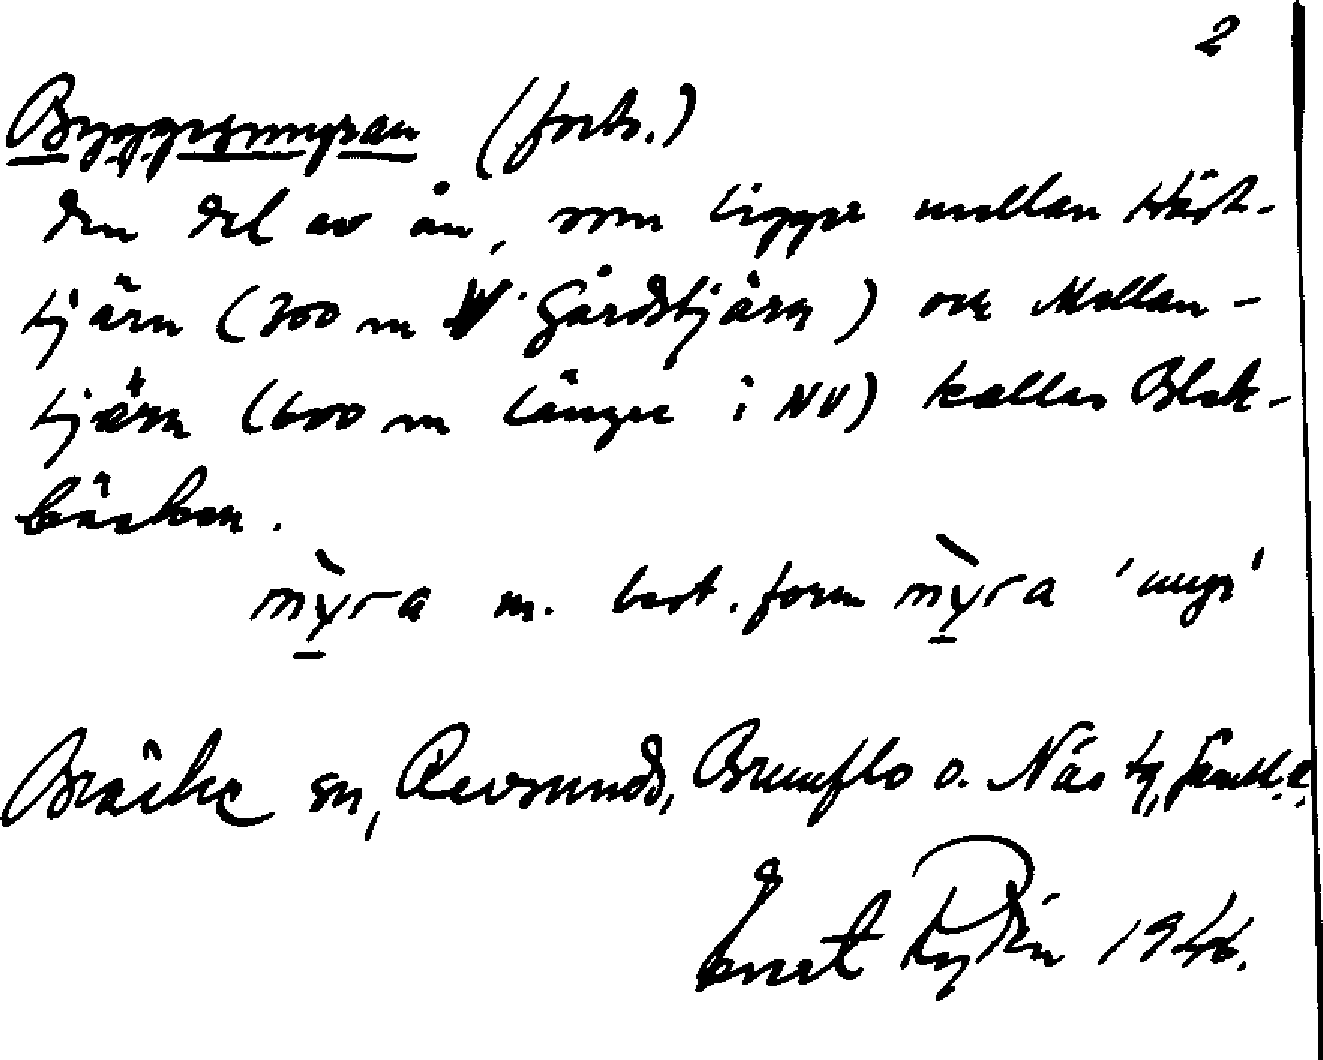 2
Byggesmyran (forts.)
den del av ån, som ligger mellan Häst-
tjärn (300 m V Gårdstjärn) och Mellan-
tjärn (600 m längre i NV) kallas Blek-
bäcken.
mỳra m. best. form mỳra 'myr'
Bräcke sn, Revsunds, Brunflo o. Näs tg, Jämtl.
Ernst Rydén 1946.